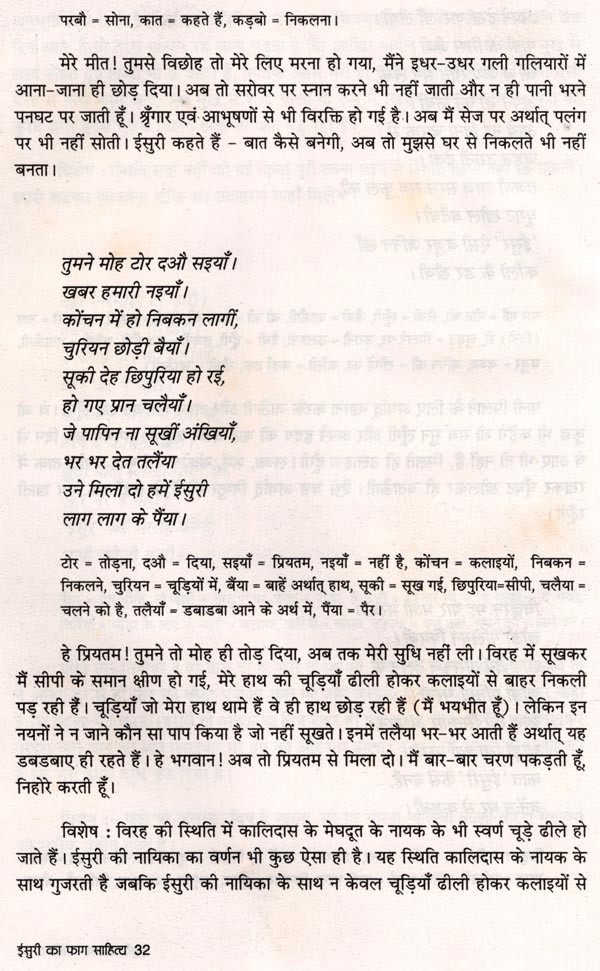 परबौ = सोना, कात = कहते हैं, कड़बो = निकलना।
मेरे मीत! तुमसे विछोह तो मेरे लिए मरना हो गया, मैंने इधर-उधर गली गलियारों में
आना-जाना ही छोड़ दिया। अब तो सरोवर पर स्नान करने भी नहीं जाती और न ही पानी भरने
पनघट पर जाती हूँ। श्रृँगार एवं आभूषणों से भी विरक्ति हो गई है। अब मैं सेज पर अर्थात् पलंग
पर भी नहीं सोती। ईसुरी कहते हैं - बात कैसे बनेगी, अब तो मुझसे घर से निकलते भी नहीं
बनता।
तुमने मोह टोर दऔ सइयाँ।
खबर हमारी नइयाँ।
कोंचन में हो निबकन लागीं,
चुरियन छोड़ी बैयाँ।
सूकी देह छिपुरिया हो रई,
हो गए प्रान चलैयाँ।
जे पापिन ना सूखीं अंखियाँ,
भर भर देत तलैंया
उने मिला दो हमें ईसुरी
लाग लाग के पैंया।
टोर = तोड़ना, दऔ = दिया, सइयाँ = प्रियतम, नइयाँ = नहीं है, कोंचन = कलाइयों, निबकन =
निकलने, चुरियन = चूड़ियों में, बैंया = बाहें अर्थात् हाथ, सूकी = सूख गई, छिपुरिया=सीपी, चलैया =
चलने को है, तलैयाँ = डबाडबा आने के अर्थ में, पैंया = पैर।
हे प्रियतम! तुमने तो मोह ही तोड़ दिया, अब तक मेरी सुधि नहीं ली। विरह में सूखकर
मैं सीपी के समान क्षीण हो गई, मेरे हाथ की चूड़ियाँ ढीली होकर कलाइयों से बाहर निकली
पड़ रही हैं। चूड़ियाँ जो मेरा हाथ थामे हैं वे ही हाथ छोड़ रही हैं (मैं भयभीत हूँ)। लेकिन इन
नयनों ने न जाने कौन सा पाप किया है जो नहीं सूखते। इनमें तलैया भर-भर आती हैं अर्थात् यह
डबडबाए ही रहते हैं। हे भगवान! अब तो प्रियतम से मिला दो। मैं बार-बार चरण पकड़ती हूँ,
निहोरे करती हूँ।
विशेष : विरह की स्थिति में कालिदास के मेघदूत के नायक के भी स्वर्ण चूड़े ढीले हो
जाते हैं। ईसुरी की नायिका का वर्णन भी कुछ ऐसा ही है। यह स्थिति कालिदास के नायक के
साथ गुजरती है जबकि ईसुरी की नायिका के साथ न केवल चूड़ियाँ ढीली होकर कलाइयों से
ईसुरी का फाग साहित्य 32